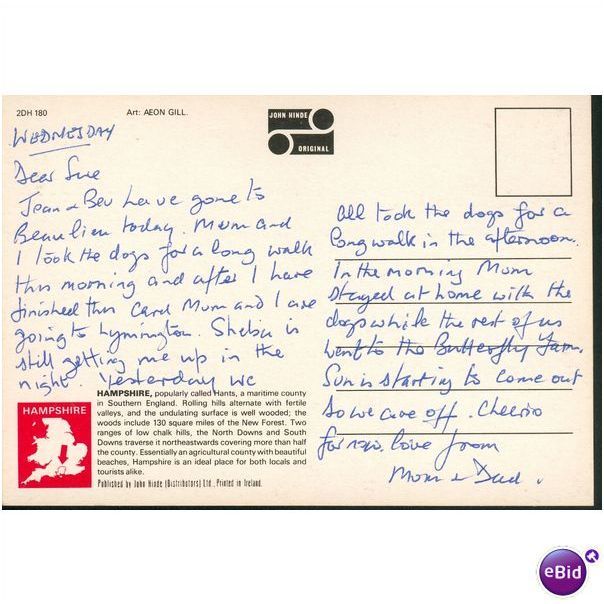 2DH 180
Art: AEON GILL.
JOHN HINDE
ORIGINAL
WEDNESDAY
Dear Sue
Jean & Bev have gone to
Beaulieu today. Mum and
I took the dogs for a long walk
this morning and after I have
finished this card Mum and I are
going to Lymington. Sheba is
still getting me up in the
night. Yesterday we
all took the dogs for a
long walk in the afternoon.
In the morning Mum
stayed at home with the
dogs while the rest of us
went to the Butterfly Farm.
Sun is starting to come out
so we are off. Cheerio
for now, love from
Mum & Dad.
HAMPSHIRE
HAMPSHIRE, popularly called Hants, a maritime county
in Southern England. Rolling hills alternate with fertile
valleys, and the undulating surface is well wooded; the
woods include 130 square miles of the New Forest. Two
ranges of low chalk hills, the North Downs and South
Downs traverse it northeastwards covering more than half
the county. Essentially an agricultural county with beautiful
beaches, Hampshire is an ideal place for both locals and
tourists alike.
Published by John Hinde (Distributors) Ltd., Printed in Ireland.
eBid